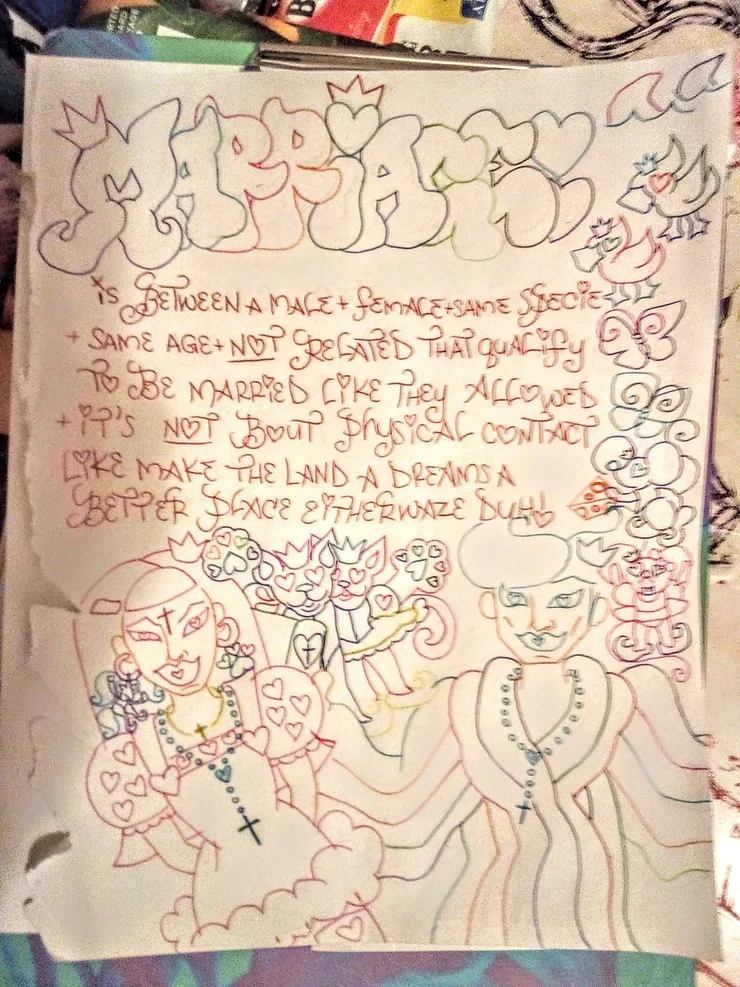 MARRIAGE
iS BETWEEN A MALE + FEMALE + SAME SPECIE
+ SAME AGE + NOT RELATED THAT QUALiFY
TO BE MARRiED LiKE THEY ALLOWED
+ iT'S NOT BOUT PHYSiCAL CONTACT
LiKE MAKE THE LAND A DREAMS A
BETTER PLACE EiTHERWAZE DUH!